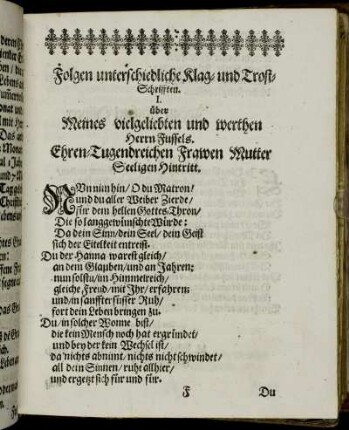 Folgen unterschiedliche Klag/ und Trost/
Schrifften.
I.
über
Meines vielgeliebten und werthen
Herrn Fussels.
Ehren/Tugendreichen Frawen Mutter
Seeligen Hintritt.
NUn nim hin/ O du Matron/
und du aller Weiber Zierde/
für dem hellen Gottes Thron/
Die so lang gewünschte Würde:
Da dein Sinn/ dein Seel/ dein Geist
sich der Eitelkeit entreist.
Du der Hanna warest gleich/
an dem Glauben/ und an Jahren;
nun solstu/ im Himmelreich/
gleiche Freud/ mit Ihr/ erfahren:
und/ in sanffter süsser Ruh/
fort dein Leben bringen zu.
Du/ in solcher Wonne bist/
die kein Mensch noch hat ergründet/
und bey der kein Wechsel ist/
da nichts abnimt/ nichts nicht schwindet/
all dein Sinnen/ ruht allhier/
und ergetzt sich für und für.
F
Du